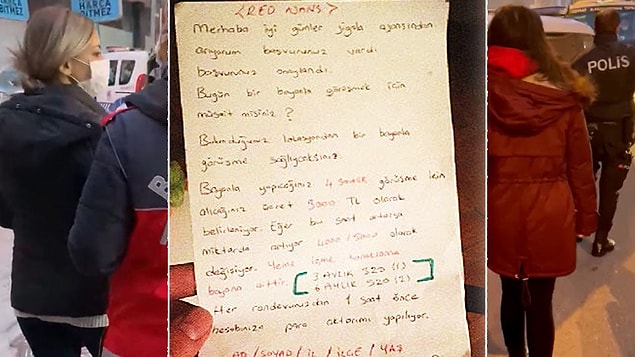 HARCA
BİTMEZ
<RED NOKS>
Merhaba iyi günler jigolo ajansından
arıyorum başvurunuz vardı
başvurunuz onaylandı.
Bugün bir bayanla görüşmek için
müsait misiniz ?
Bulunduğunuz lokasyondan bir bayanla
görüşme sağlıycaksınız.
Bayanla yapıcağınız 4 saatlik görüşme için
alıcağınız ücret 3000 TL olarak
belirleniyor. Eğer bu saat artarsa
miktarda artıyor 4000 / 5000 olarak
değişiyor. Yeme içme konaklama
bayana aittir. [ 3 AYLIK 320 (1)
6 AYLIK 520 (2) ]
Her randevunuzdan 1 saat önce
hesabınıza para aktarımı yapılıyor.
AD / SOYAD / İL / İLÇE / YAŞ
POLİS